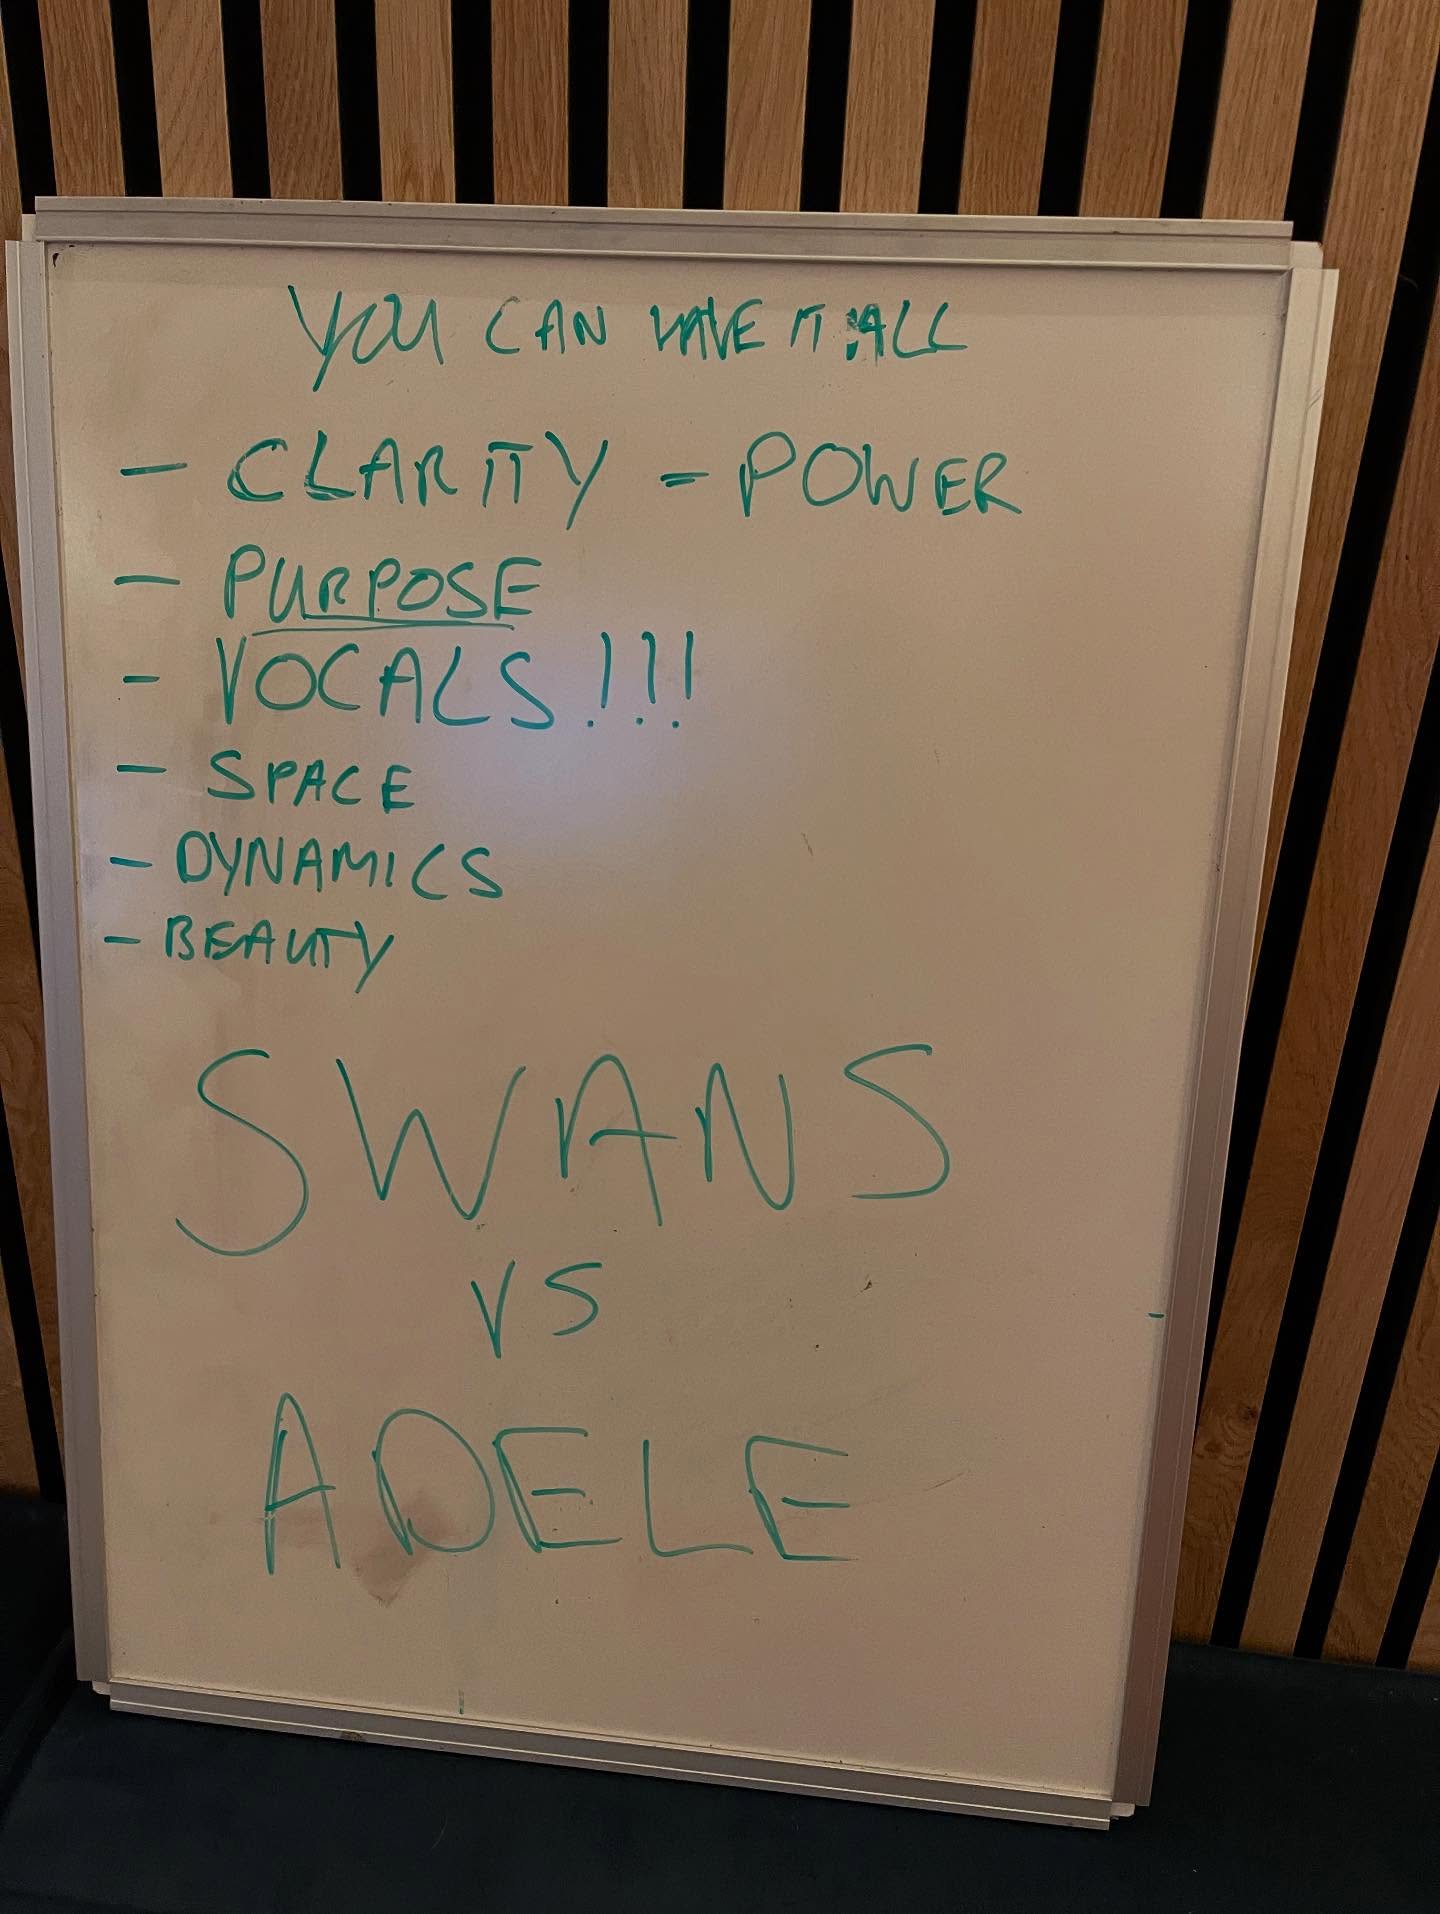 YOU CAN HAVE IT ALL
- CLARITY = POWER
- PURPOSE
- VOCALS!!!
- SPACE
- DYNAMICS
- BEAUTY
SWANS
VS
ADELE